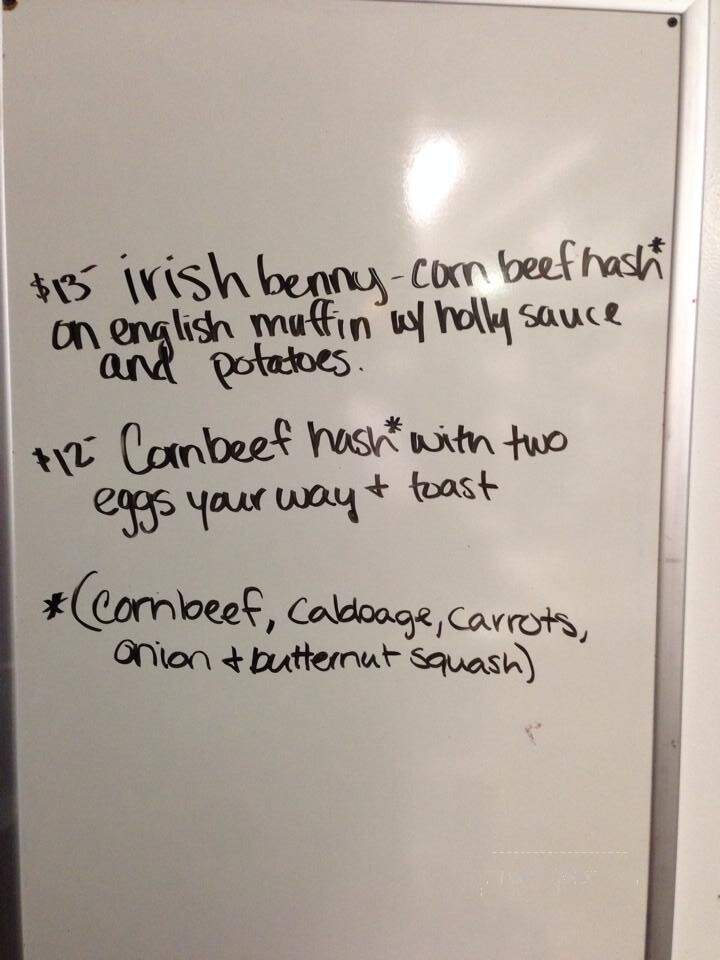 $13- irish benny - corn beef hash*
on english muffin w/ holly sauce
and potatoes.
$12- Cornbeef hash* with two
eggs your way + toast
*(cornbeef, cabbage, carrots,
onion + butternut squash)